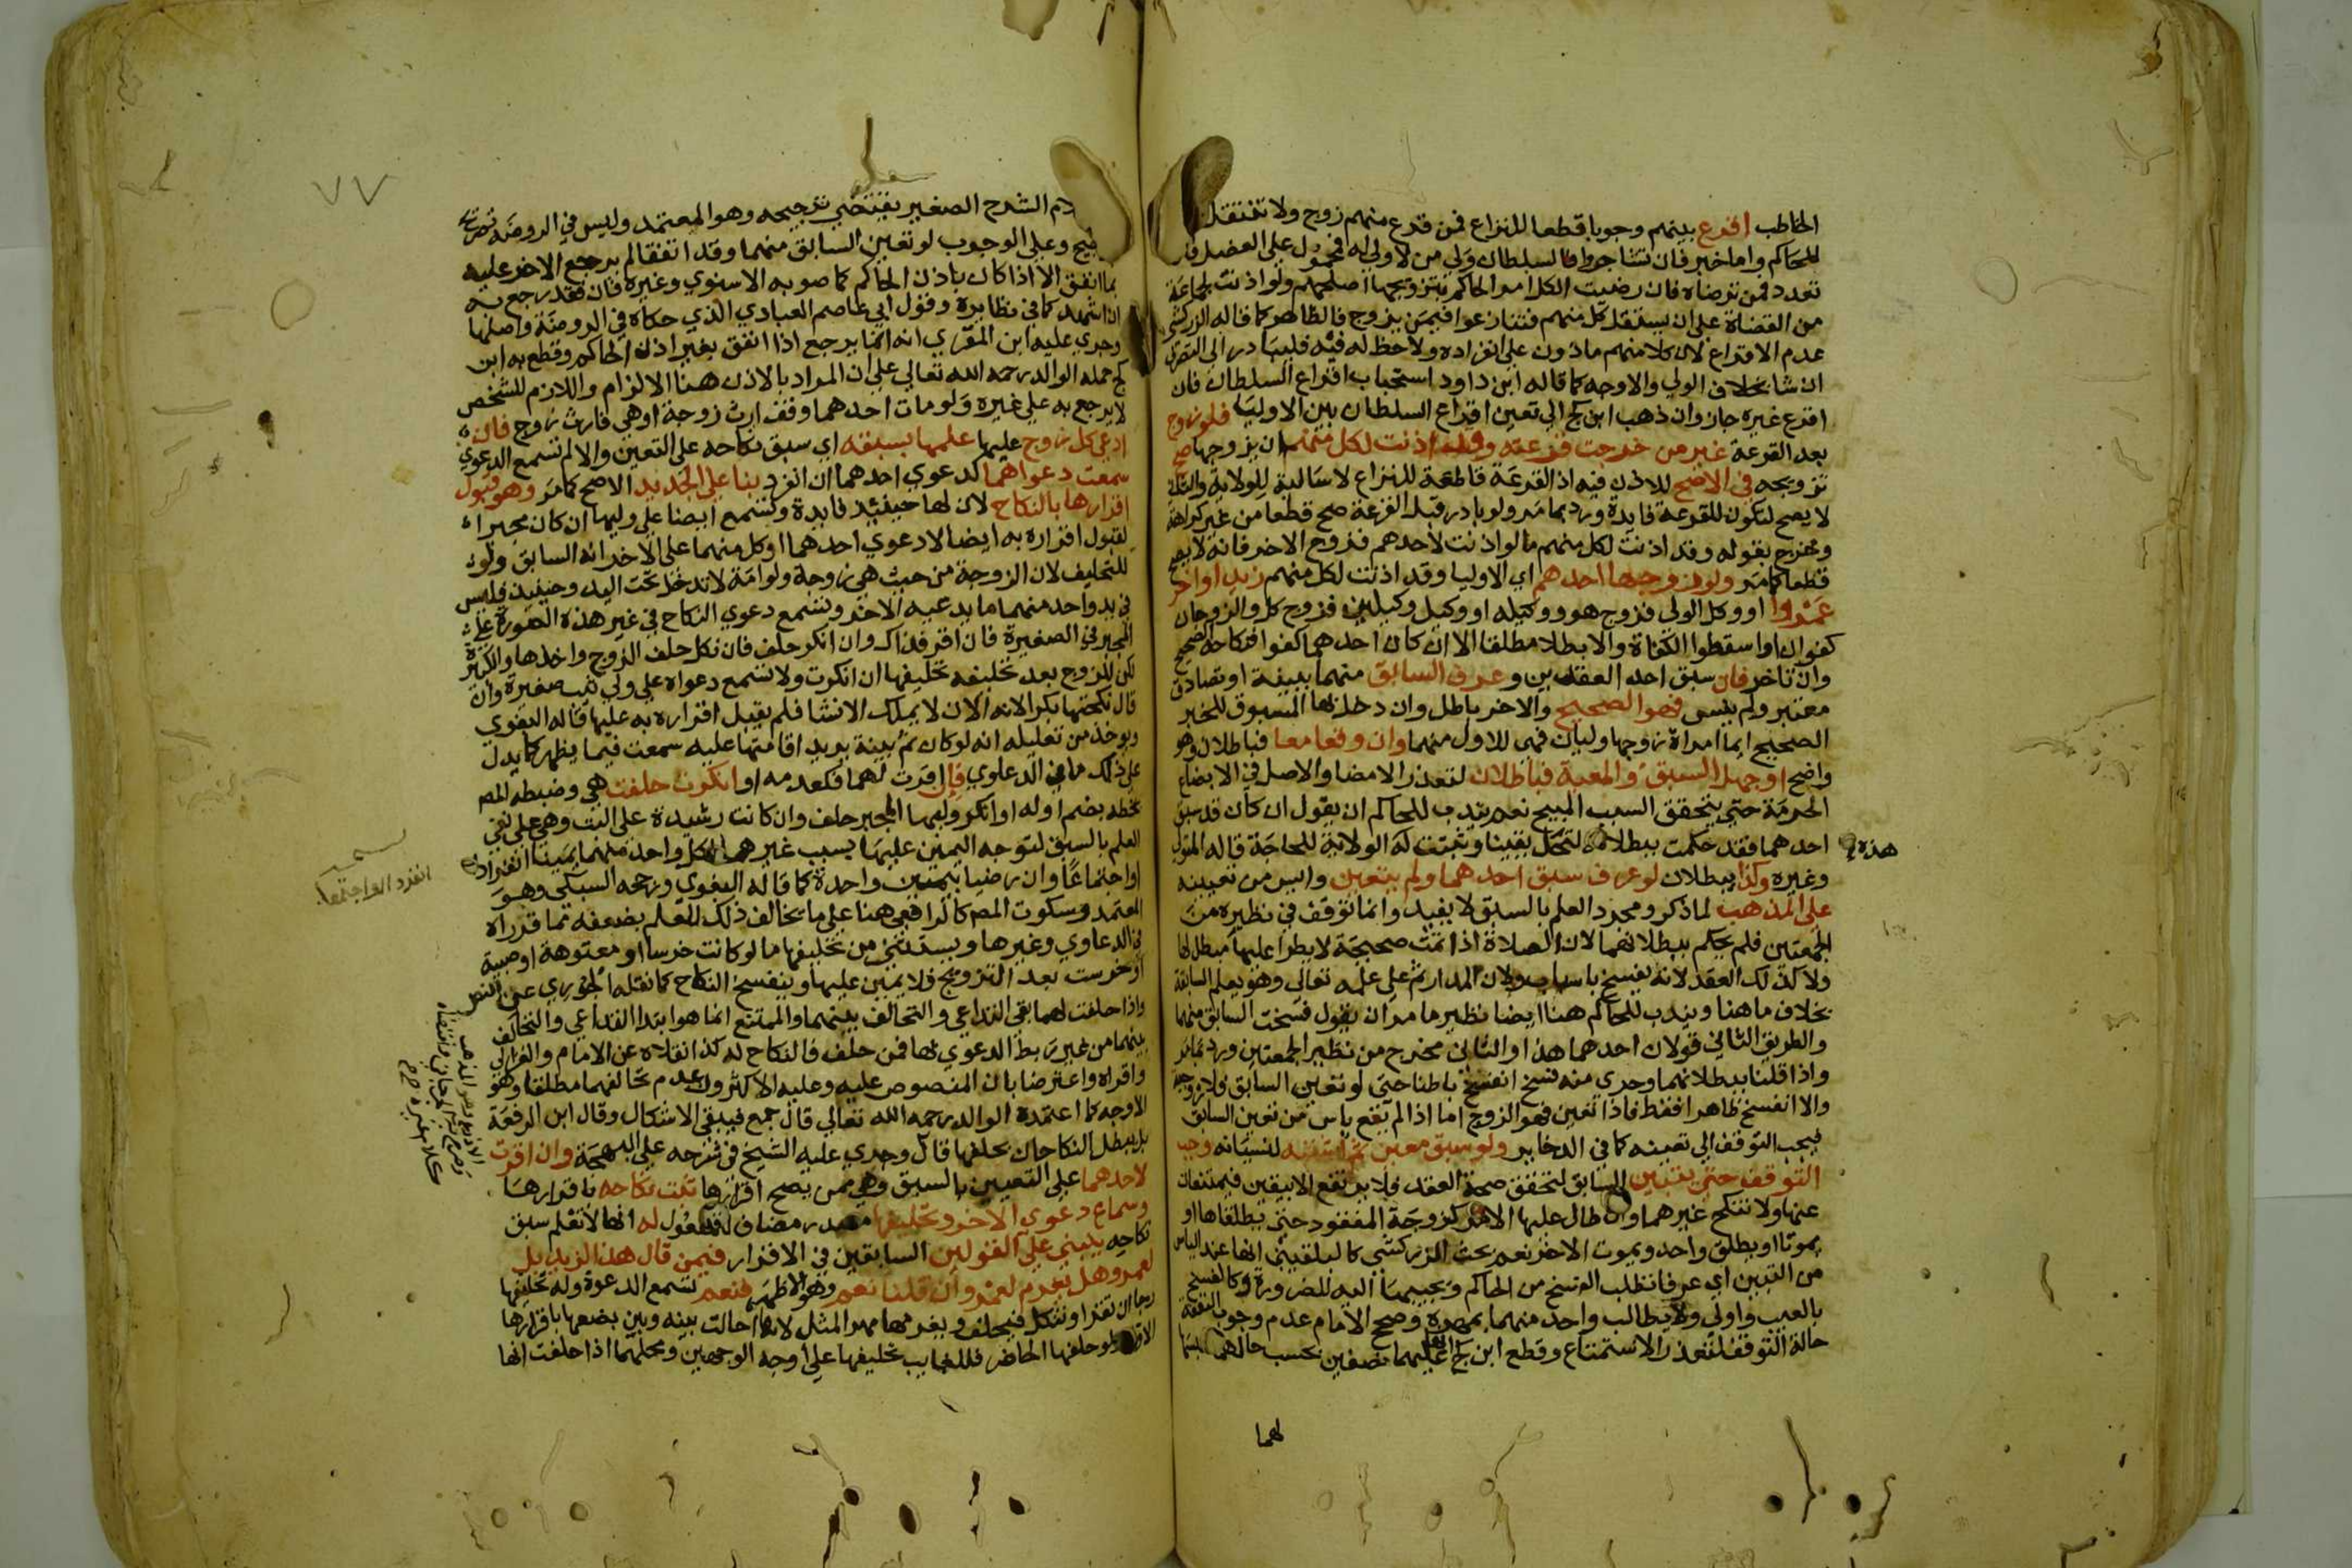 الخاطب اقرع بينهم وجوبا قطعا للنزاع فمن قرع منهم زوج ولا تنتقل
للحاكم واما خبر فان تشاجروا فالسلطان ولي من لا ولي له فمحمول على العضل
تعدد فمن ترضاه فان رضيت الكل امر الحاكم بتزويجها اصلحهم ولو اذنت لجماعة
من القضاة على ان يستقل كل منهم فتنازعوا فيمن يزوج فالظاهر كما قاله الزركشي
عدم الاقراع لان كلا منهم ماذون على انفراده ولا حظ له فيه فليبادر الى التصرف
ان شا بخلاف الولي والاوجه كما قاله ابن داود استحباب اقراع السلطان فان
اقرع غيره جاز وان ذهب ابن كج الى تعين اقراع السلطان بين الاوليا فلو زوج
بعد القرعة غير من خرجت قرعته وقد اذنت لكل منهم ان يزوجها صح
تزويجه في الاصح للاذن فيه اذ القرعة قاطعة للنزاع لا سالبة للولاية والثاني
لا يصح لتكون للقرعة فايدة ورد بما مر ولو بادر قبل القرعة صح قطعا من غير كراهة
وخرج بقوله وقد اذنت لكل منهم ما لو اذنت لاحدهم فزوج الاخر فانه لا يصح
قطعا كما مر ولو زوجها احدهم اي الاوليا وقد اذنت لكل منهم زيدا واخر
عمرا او وكل الولي فزوج هو ووكيله او وكيل وكيلين فزوج كل والزوجان
كفوان او اسقطوا الكفاة والا بطلا مطلقا الا ان كان احدهما كفوا فنكاحه الصحيح
وان تاخر فان سبق احد العقدين وعرف السابق منهما ببينة او تصادق
معتبر ولم ينس فهو الصحيح والاخر باطل وان دخل بها المسبوق للخبر
الصحيح ايما امراة زوجها وليان فهي للاول منهما وان وقعا معا فباطلان وهو
واضح او جهل السبق والمعية فباطلان لتعذر الامضا والاصل في الابضاع
الحرمة حتى يتحقق السبب المبيح نعم يندب للحاكم ان يقول ان كان قد سبق
احدهما فقد حكمت ببطلانه لتحل يقينا وتثبت له الولاية للحاجة قاله المتولي
هذه
وغيره وكذا يبطلان لو عرف سبق احدهما ولم يتعين وايس من تعيينه
على المذهب لما ذكر ومجرد العلم بالسبق لا يفيد وانما توقف في نظيره من
الجمعتين فلم يحكم ببطلانهما لان الصلاة اذا تمت صحيحة لا يطرا عليها مبطل لها
ولا كذلك العقد لانه يفسخ باسباب ولان المدار ثم على علمه تعالى وهو يعلم السابقة
بخلاف ما هنا ويندب للحاكم هنا ايضا نظير ما مر ان يقول فسخت السابق منهما
والطريق الثاني قولان احدهما هذا والثاني مخرج من نظير الجمعتين ورد بما مر
واذا قلنا ببطلانهما وجري منه فسخ انفسخ باطنا حتى لو تعين السابق فلا زوجية
والا انفسخ ظاهرا فقط فاذا تعين فهو الزوج اما اذا لم يقع ياس من تعين السابق
فيجب التوقف الى تعينه كما في الدخاير ولو سبق معين ثم اشتبه لنسيانه وجب
التوقف حتى يتبين السابق لتحقق صحة العقد فلا يرتفع الا بيقين فيمتنعان
عنها ولا تنكح غيرهما وان طال عليها الامر كزوجة المفقود حتى يطلقاها او
يموتا او يطلق واحد ويموت الاخر نعم بحث الزركشي كالبلقيني انها عند الياس
من التبين اي عرفا تطلب الفسخ من الحاكم ويجيبها اليه للضرورة وكالفسخ
بالعيب واولى ولا يطالب واحد منهما بمهره وصحح الامام عدم وجوب النفقة
حالة التوقف لتعذر الاستمتاع وقطع ابن كج عليهما نصفين بحسب حالهما
لهما
٧٧
الشرح الصغير يقتضي ترجيحه وهو المعتمد وليس في الروضة
وعلى الوجوب لو تعين السابق منهما وقد انفقا لم يرجع الاخر عليه
بما انفق الا اذا كان باذن الحاكم كما صوبه الاسنوي وغيره فان فقد رجع به
ان اشهد كما في نظايره وقول ابي عاصم العبادي الذي حكاه في الروضة واصلها
وجري عليه ابن المقري انه انما يرجع اذا انفق بغير اذن الحاكم وقطع به ابن
كج حمله الوالد رحمه الله تعالى على ان المراد بالاذن هنا الالزام واللازم للشخص
لا يرجع به على غيره ولو مات احدهما وقف ارث زوجة او هي فارث زوج فان
ادعى كل زوج عليها علمها بسبقه اي سبق نكاحه على التعين والا لم تسمع الدعوي
سمعت دعواهما كدعوي احدهما ان انفرد بنا على الجديد الاصح كما مر وهو قبول
اقرارها بالنكاح لان لها حينئذ فايدة وتسمع ايضا على وليها ان كان مجبرا
لقبول اقراره به ايضا لا دعوي احدهما او كل منهما على الاخر انه السابق ولو
للتحليف لان الزوجة من حيث هي زوجة ولو امة لا تدخل تحت اليد وحينئذ فليس
في يد واحد منهما ما يدعيه الاخر وتسمع دعوي النكاح في غير هذه الصورة على
المجبر في الصغيرة فان اقر فذاك وان انكر حلف فان نكل حلف الزوج واخذها والكبيرة
لكن للزوج بعد تحليفه تحليفها ان انكرت ولا تسمع دعواه على ولي ثيب صغيرة وان
قال نكحتها بكرا لانه الان لا يملك الانشا فلم يقبل اقراره به عليها قاله البغوي
ويوخذ من تعليله انه لو كان ثم بينة يريد اقامتها عليه سمعت فيما يظهر كما يدل
على ذلك ما في الدعاوي فان اقرت لهما فكعدمه او انكرت حلفت هي وضبطه المص
بخطه بضم اوله او انكر وليها المجبر حلف وان كانت رشيدة على البت وهي على نفي
العلم بالسبق لتوجه اليمين عليهما بسبب غيرهما لكل واحد منهما يمينا انفرادا
او اجتماعا وان رضيا بيمين واحدة كما قاله البغوي ورجحه السبكي وهو
انفردا او اجتمعا
المعتمد وسكوت المص كالرافعي هنا على ما يخالف ذلك للعلم بضعفه مما قرراه
في الدعاوي وغيرها ويستثنى من تحليفها ما لو كانت خرسا او معتوهة او صبية
او خرست بعد التزويج فلا يمين عليها وينفسخ النكاح كما نقله الجوري عن النص
واذا حلفت لهما بقي التداعي والتحالف بينهما والممتنع انما هو ابتدا التداعي والتحالف
بينهما من غير ربط الدعوي بها فمن حلف فالنكاح له كذا نقلاه عن الامام والغزالي
واقراه واعترضا بان المنصوص عليه وعليه الاكثرون عدم تحالفهما مطلقا وهو
الاوجه كما اعتمده الوالد رحمه الله تعالى قال جمع فيبقى الاشكال وقال ابن الرفعة
بل يبطل النكاحان بحلفها قال وجري عليه الشيخ في شرحه على البهجة وان اقرت
لاحدهما على التعيين بالسبق وهي ممن يصح اقرارها ثبت نكاحه باقرارها
وسماع دعوي الاخر وتحليفها مصدر مضاف للمفعول له انها لا تعلم سبق
نكاحه يبنى على القولين السابقين في الاقرار فيمن قال هذا لزيد بل
لعمرو هل يغرم لعمرو ان قلنا نعم وهو الاظهر فنعم تسمع الدعوة وله تحليفها
رجا ان تقر او تنكل فيحلف ويغرمها مهر المثل لانها احالت بينه وبين بضعها باقرارها
ولو حلفها الحاضر فللغايب تحليفها على اوجه الوجهين ومحلهما اذا حلفت انها